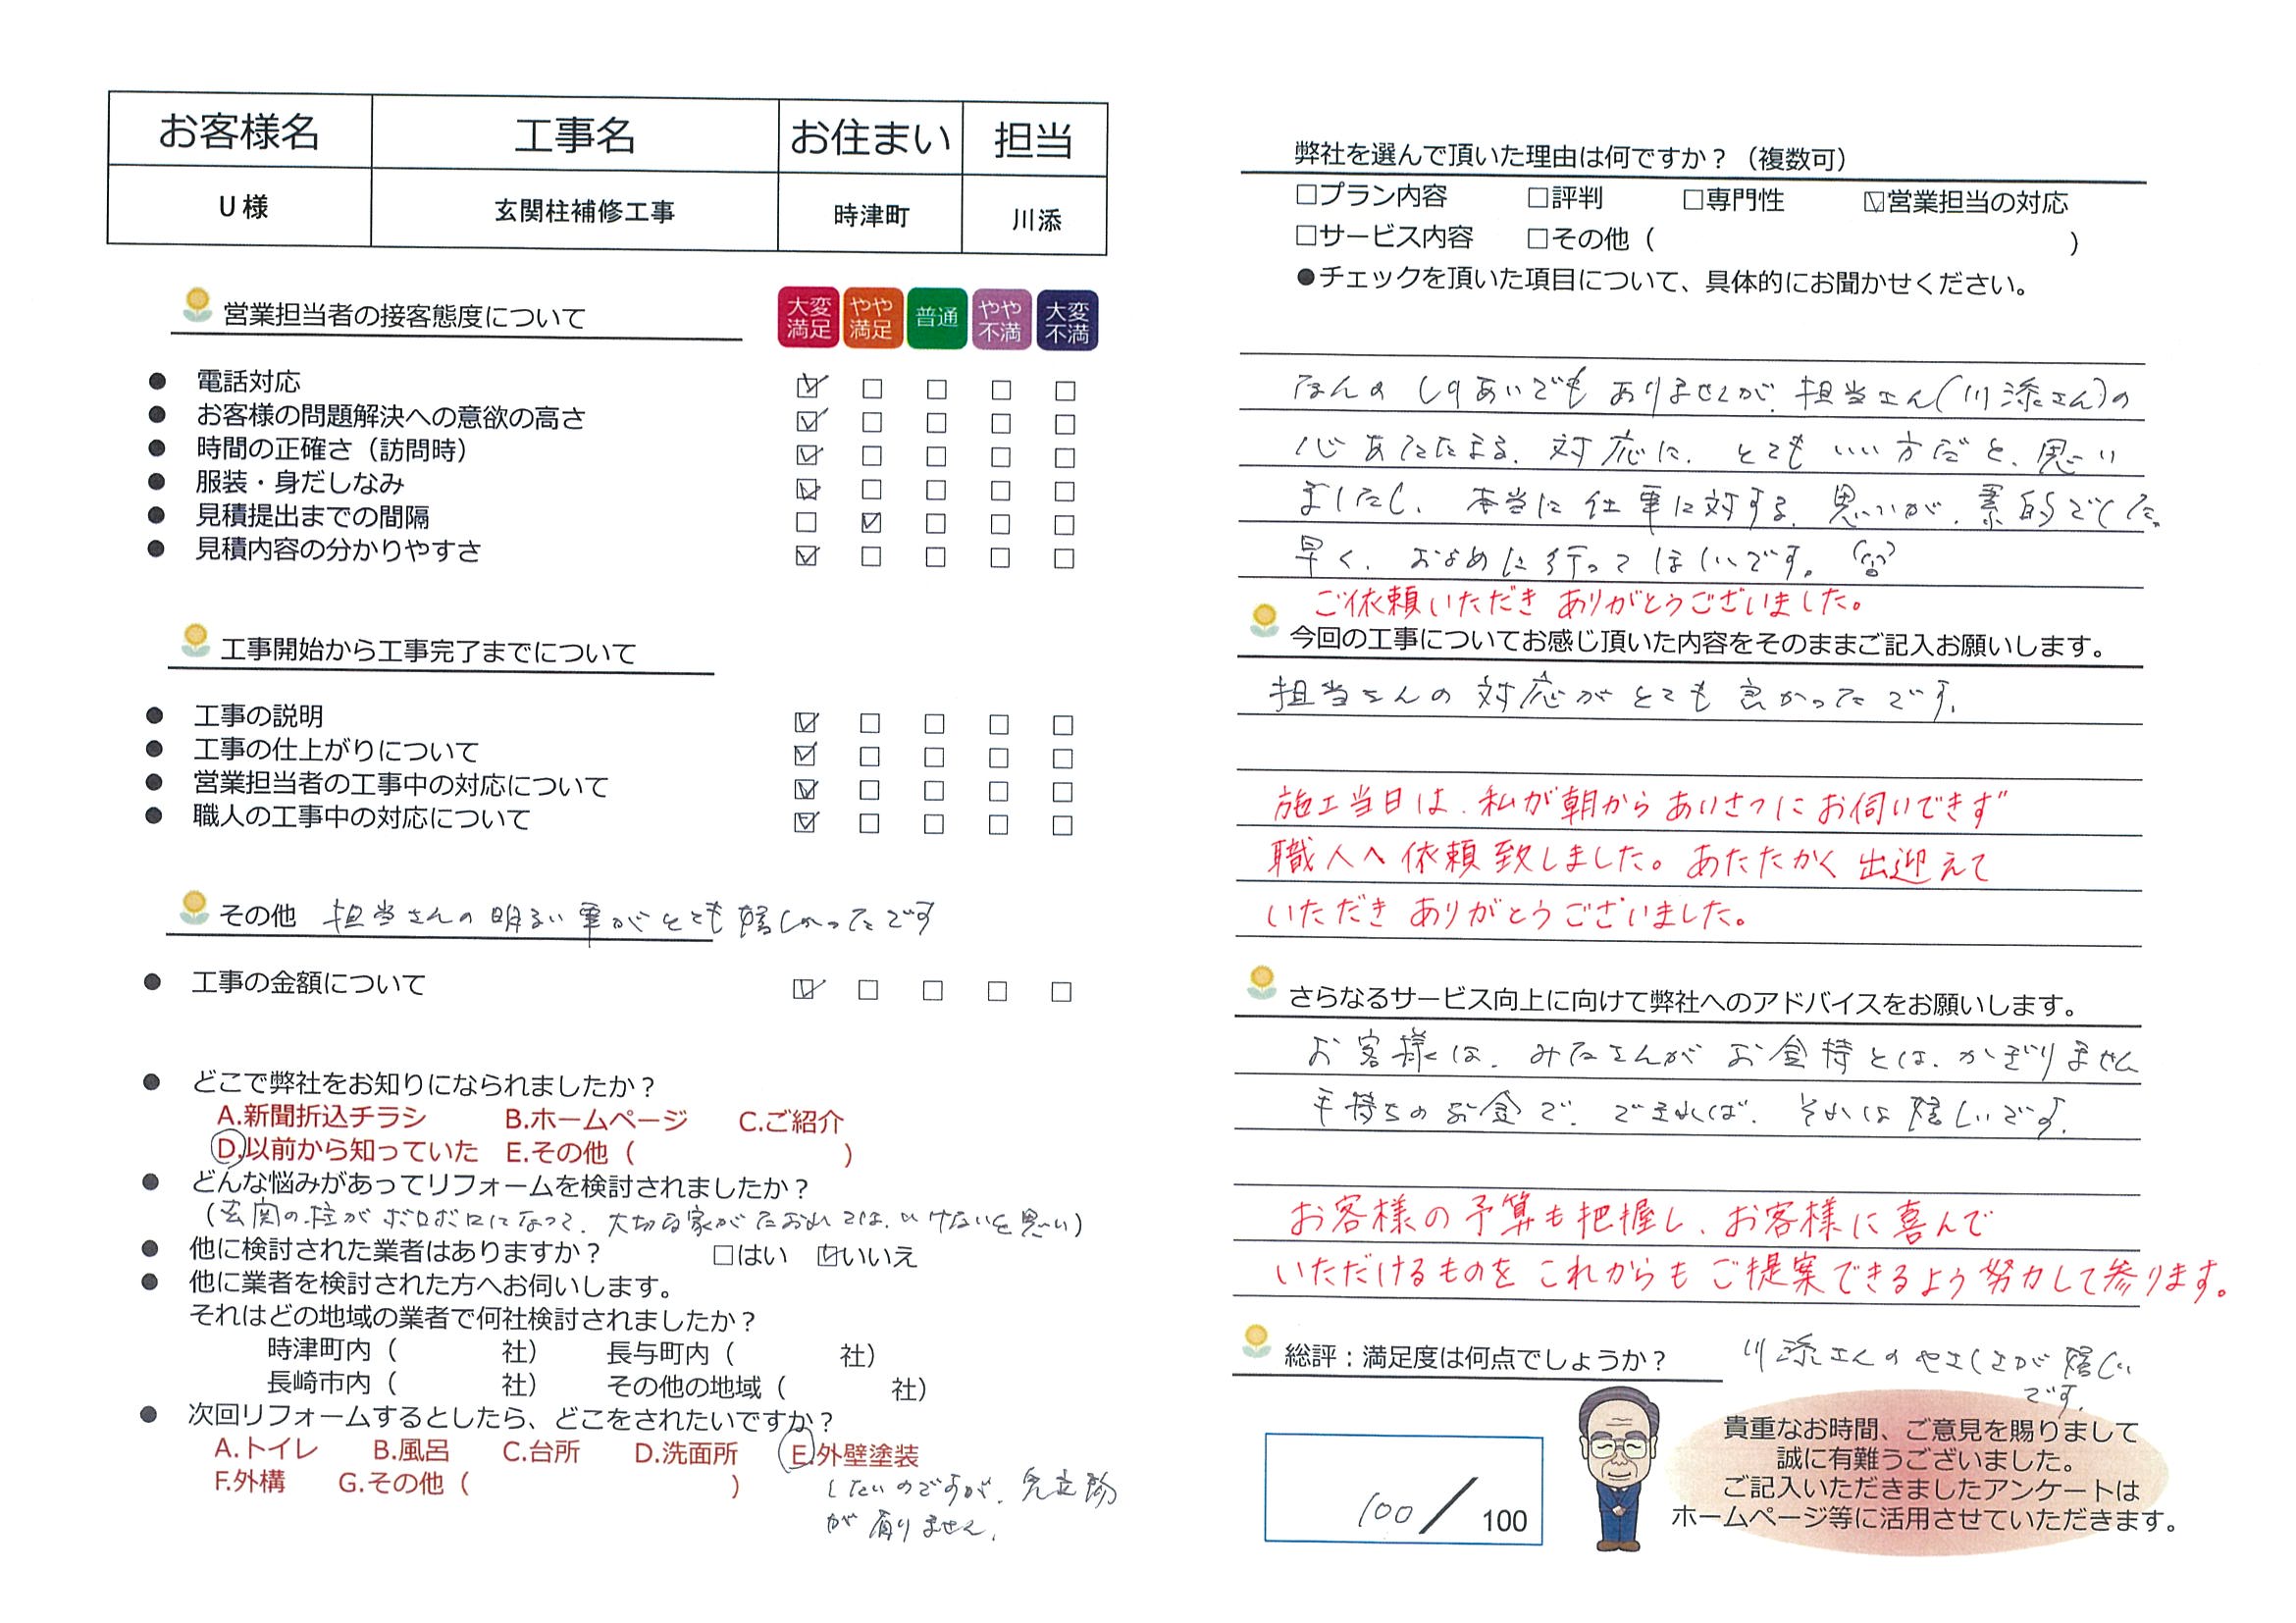 お客様名 工事名 お住まい 担当
U様 玄関柱補修工事 時津町 川添
営業担当者の接客態度について
大変満足 やや満足 普通 やや不満 大変不満
● 電話対応 ☑ □ □ □ □
● お客様の問題解決への意欲の高さ ☑ □ □ □ □
● 時間の正確さ（訪問時） ☑ □ □ □ □
● 服装・身だしなみ ☑ □ □ □ □
● 見積提出までの間隔 □ ☑ □ □ □
● 見積内容の分かりやすさ ☑ □ □ □ □
工事開始から工事完了までについて
● 工事の説明 ☑ □ □ □ □
● 工事の仕上がりについて ☑ □ □ □ □
● 営業担当者の工事中の対応について ☑ □ □ □ □
● 職人の工事中の対応について ☑ □ □ □ □
その他 担当さんの明るい事がとても嬉しかったです
● 工事の金額について ☑ □ □ □ □
● どこで弊社をお知りになられましたか？
A.新聞折込チラシ B.ホームページ C.ご紹介
D.以前から知っていた E.その他（ ）
● どんな悩みがあってリフォームを検討されましたか？
（玄関の柱がボロボロになって、大切な家がたおれては、いけないと思い）
● 他に検討された業者はありますか？ □はい ☑いいえ
● 他に業者を検討された方へお伺いします。
それはどの地域の業者で何社検討されましたか？
時津町内（ 社） 長与町内（ 社）
長崎市内（ 社） その他の地域（ 社）
● 次回リフォームするとしたら、どこをされたいですか？
A.トイレ B.風呂 C.台所 D.洗面所 E.外壁塗装
F.外構 G.その他（ ）
したいのですが、先立物
が有りません。
弊社を選んで頂いた理由は何ですか？（複数可）
□プラン内容 □評判 □専門性 ☑営業担当の対応
□サービス内容 □その他（ ）
●チェックを頂いた項目について、具体的にお聞かせください。
なんの しりあいでも ありませんが、担当さん（川添さん）の
心あたたまる、対応に、とても いい方だと、思い
ましたし、本当に仕事に対する、思いが、素的でした。
早く、およめに行ってほしいです。
ご依頼いただき ありがとうございました。
今回の工事についてお感じ頂いた内容をそのままご記入お願いします。
担当さんの対応がとても良かったです。
施工当日は、私が朝からあいさつにお伺いできず
職人へ依頼致しました。あたたかく出迎えて
いただき ありがとうございました。
さらなるサービス向上に向けて弊社へのアドバイスをお願いします。
お客様は、みなさんがお金持とは、かぎりません
手持ちのお金で、できれば、それは嬉しいです。
お客様の予算も把握し、お客様に喜んで
いただけるものを これからも ご提案できるよう努力して参ります。
総評：満足度は何点でしょうか？ 川添さんのやさしさが嬉しい
です。
100／100
貴重なお時間、ご意見を賜りまして
誠に有難うございました。
ご記入いただきましたアンケートは
ホームページ等に活用させていただきます。